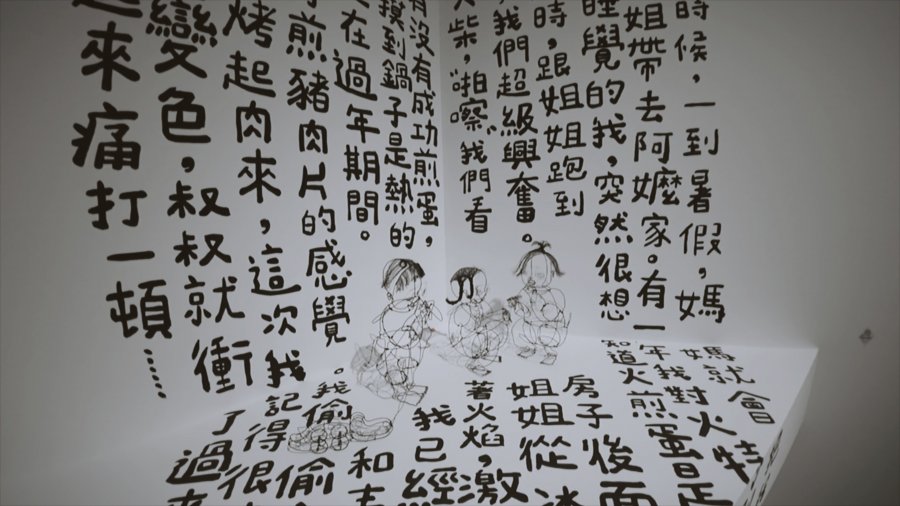 時候，一到暑假，媽媽就會
姐帶去阿嬤家。有一年我對火特
睡覺的我，突然很想知道火煎蛋是
時，跟姐姐跑到房子後面
我們超級興奮。姐姐從
柴，"啪嚓"我們看著火焰，激
有沒有成功煎蛋，我已經
摸到鍋子是熱的
在過年期間。和
煎豬肉片的感覺。我偷偷
烤起肉來，這次我記得很
變色，叔叔就衝了過來
起來痛打一頓……